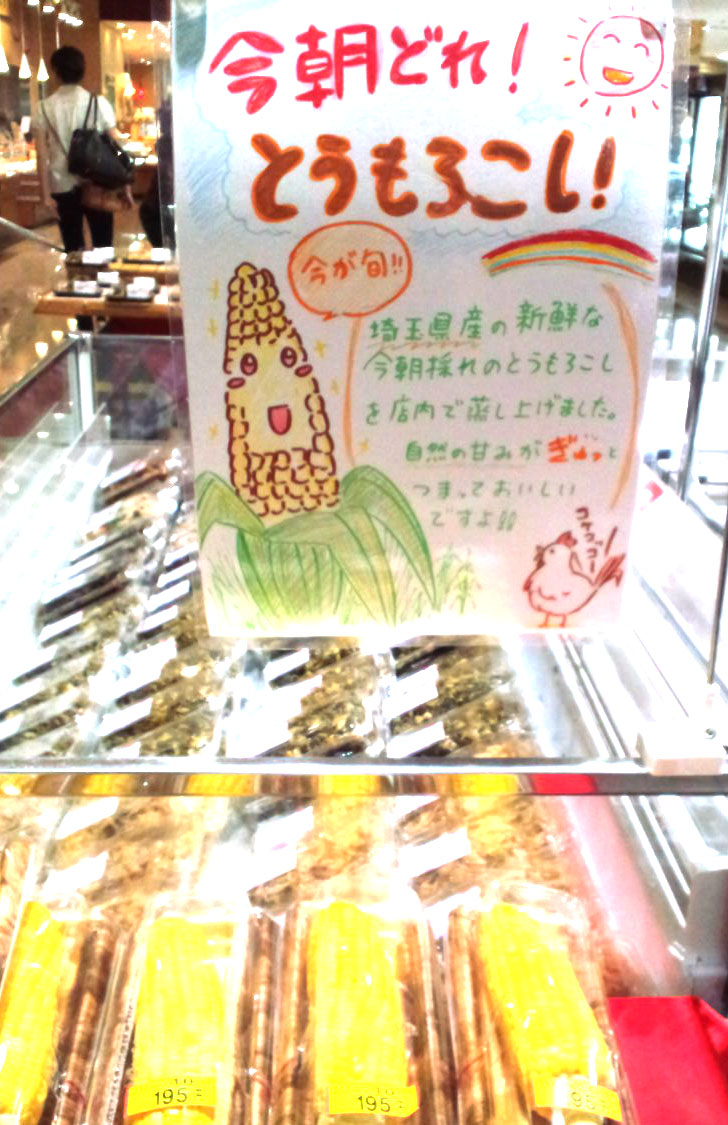 今朝どれ!
とうもろこし!
今が旬!!
埼玉県産の新鮮な
今朝採れのとうもろこし
を店内で蒸し上げました。
自然の甘みがぎゅっと
つまっておいしい
ですよ!!
コケコッコー
195
195
95